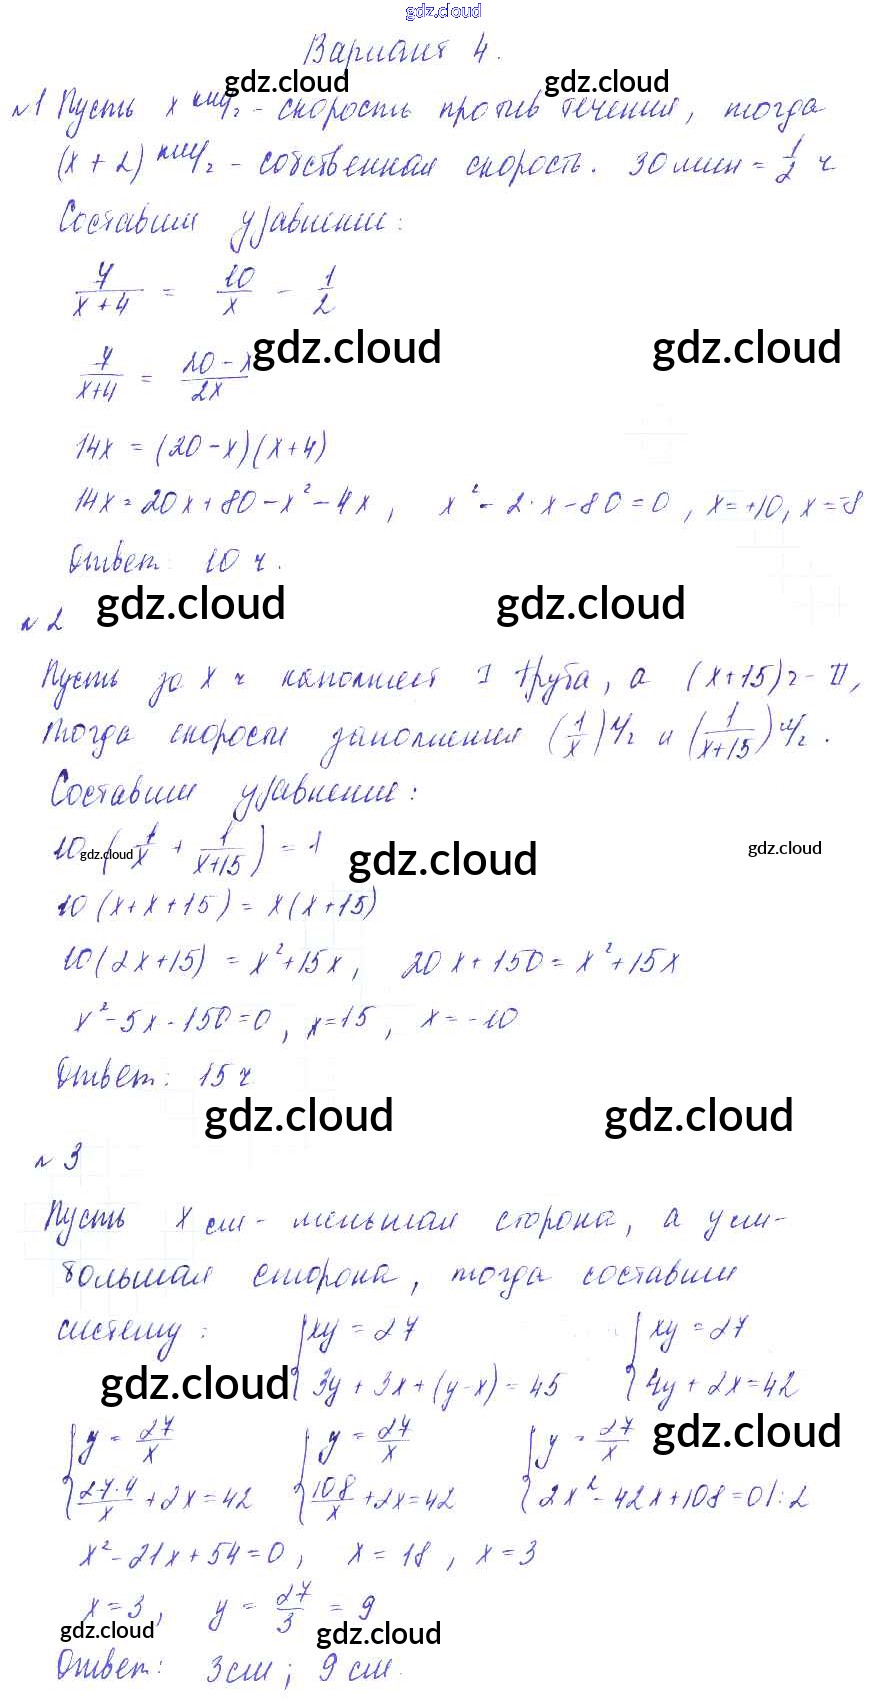 gdz.cloud
Вариант 4.
gdz.cloud gdz.cloud
№1 Пусть x км/ч - скорость против течения, тогда
(x + 2) км/ч - собственная скорость. 30 мин = 1/2 ч
Составим уравнение:
7/(x + 4) = 10/x - 1/2
gdz.cloud gdz.cloud
7/(x+4) = (20 - x)/2x
14x = (20 - x)(x + 4)
14x = 20x + 80 - x² - 4x, x² - 2·x - 80 = 0, x = +10, x = -8
Ответ: 10 ч.
gdz.cloud gdz.cloud
№2
Пусть за x ч наполняет I труба, а (x + 15) ч - II,
тогда скорости заполнения (1/x) ч/ч и (1/(x+15)) ч/ч.
Составим уравнение:
10 (1/x + 1/(x+15)) = 1
gdz.cloud gdz.cloud gdz.cloud
10 (x + x + 15) = x (x + 15)
10 (2x + 15) = x² + 15x, 20x + 150 = x² + 15x
x² - 5x - 150 = 0, x = 15, x = -10
Ответ: 15 ч
gdz.cloud gdz.cloud
№3
Пусть x см - меньшая сторона, а y см -
большая сторона, тогда составим
систему: { xy = 27 { xy = 27
3y + 3x + (y - x) = 45 4y + 2x = 42
gdz.cloud gdz.cloud
{ y = 27/x { y = 27/x { y = 27/x
27·4/x + 2x = 42 108/x + 2x = 42 2x² - 42x + 108 = 0 |:2
x² - 21x + 54 = 0, x = 18, x = 3
x = 3, y = 27/3 = 9
gdz.cloud gdz.cloud
Ответ: 3 см; 9 см.